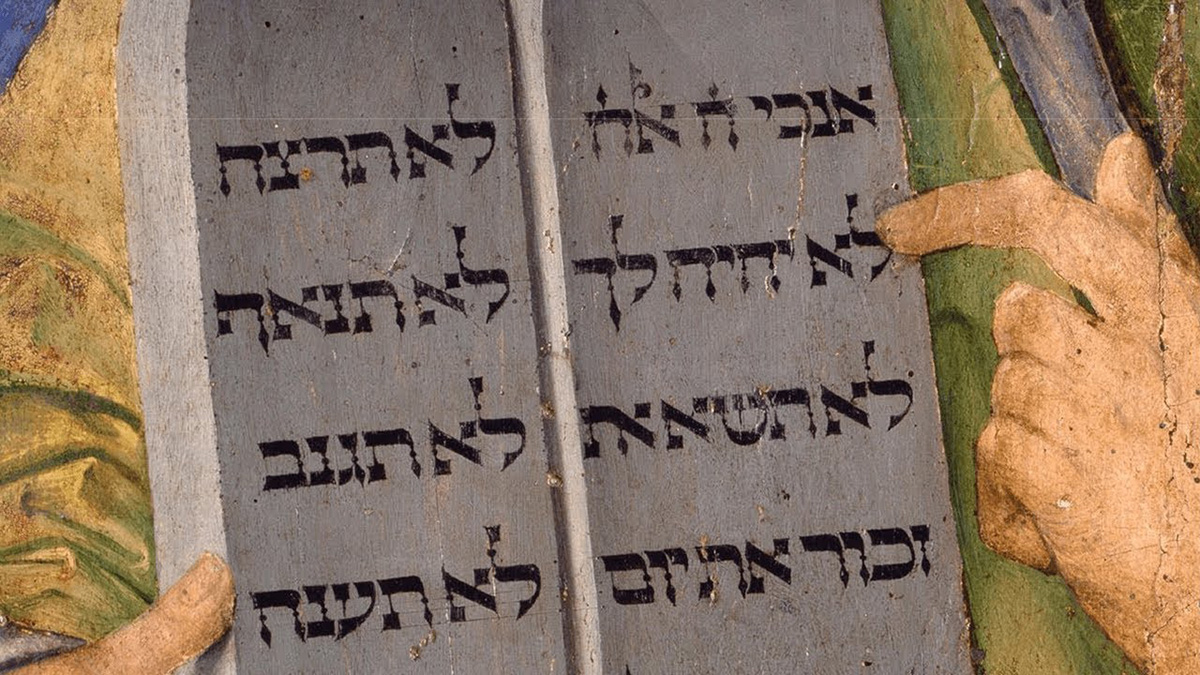 אנכי ה אלה
לא יהיה לך
לא תשא את
זכור את יום
לא תרצח
לא תנאף
לא תגנב
לא תענה